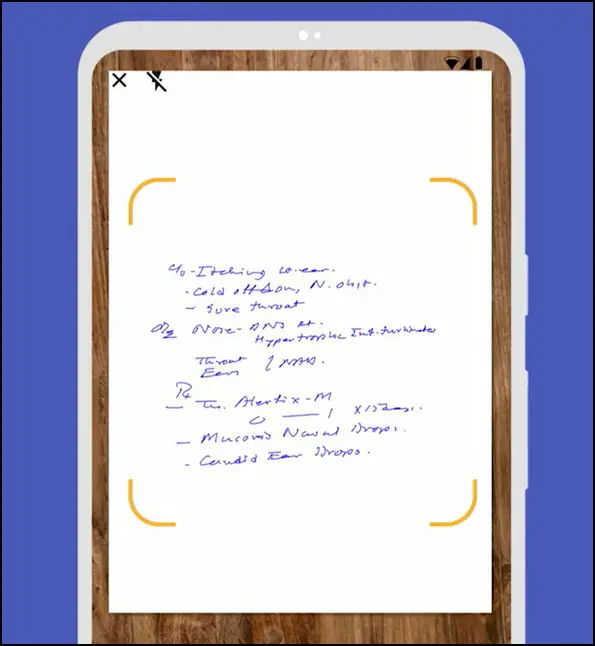 C/o - Itching Lt. ear.
- Cold off & on, N. obst.
- Sore throat
O/E Nose - DNS Rt.
Hypertrophic Inf. turbinates
Throat
Ears } NAD.
Rx
- Tab. Alertix-M
0 — 1 x 15 days.
- Nasal Drops.
- Candid Ear Drops.